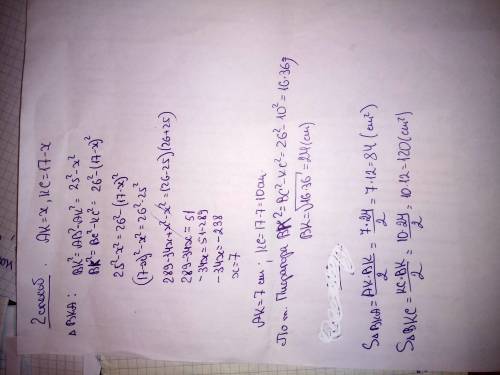 2 способ. AK=x, KC=17-x
△BKA:
BK²=AB²-AK²=25²-x²
BK²=BC²-KC²=26²-(17-x)²
25²-x²=26²-(17-x)²
(17-x)²-x²=26²-25²
289-34x+x²-x²=(26-25)(26+25)
289-34x=51
-34x=51-289
-34x=-238
x=7
AK=7cm; KC=17-7=10cm
По т. Пифагора BK²=BC²-KC²=26²-10²=16·36
BK=√16·36=24(cm)
S△BKA=AK·BK/2=7·24/2=7·12=84 (cm²)
S△BKC=KC·BK/2=10·24/2=10·12=120(cm²)